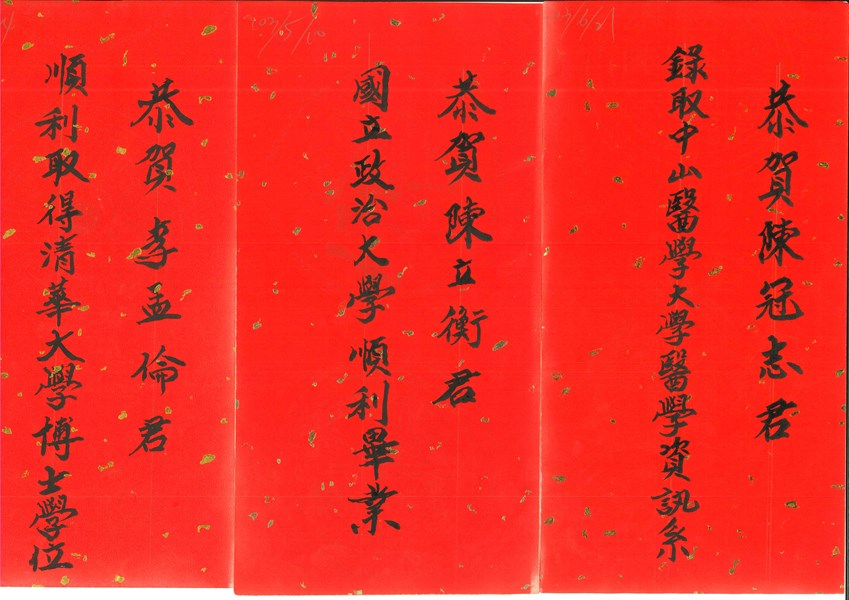 恭賀陳冠志君
錄取中山醫學大學醫學資訊系
恭賀陳立衡君
國立政治大學順利畢業
恭賀李孟倫君
順利取得清華大學博士學位